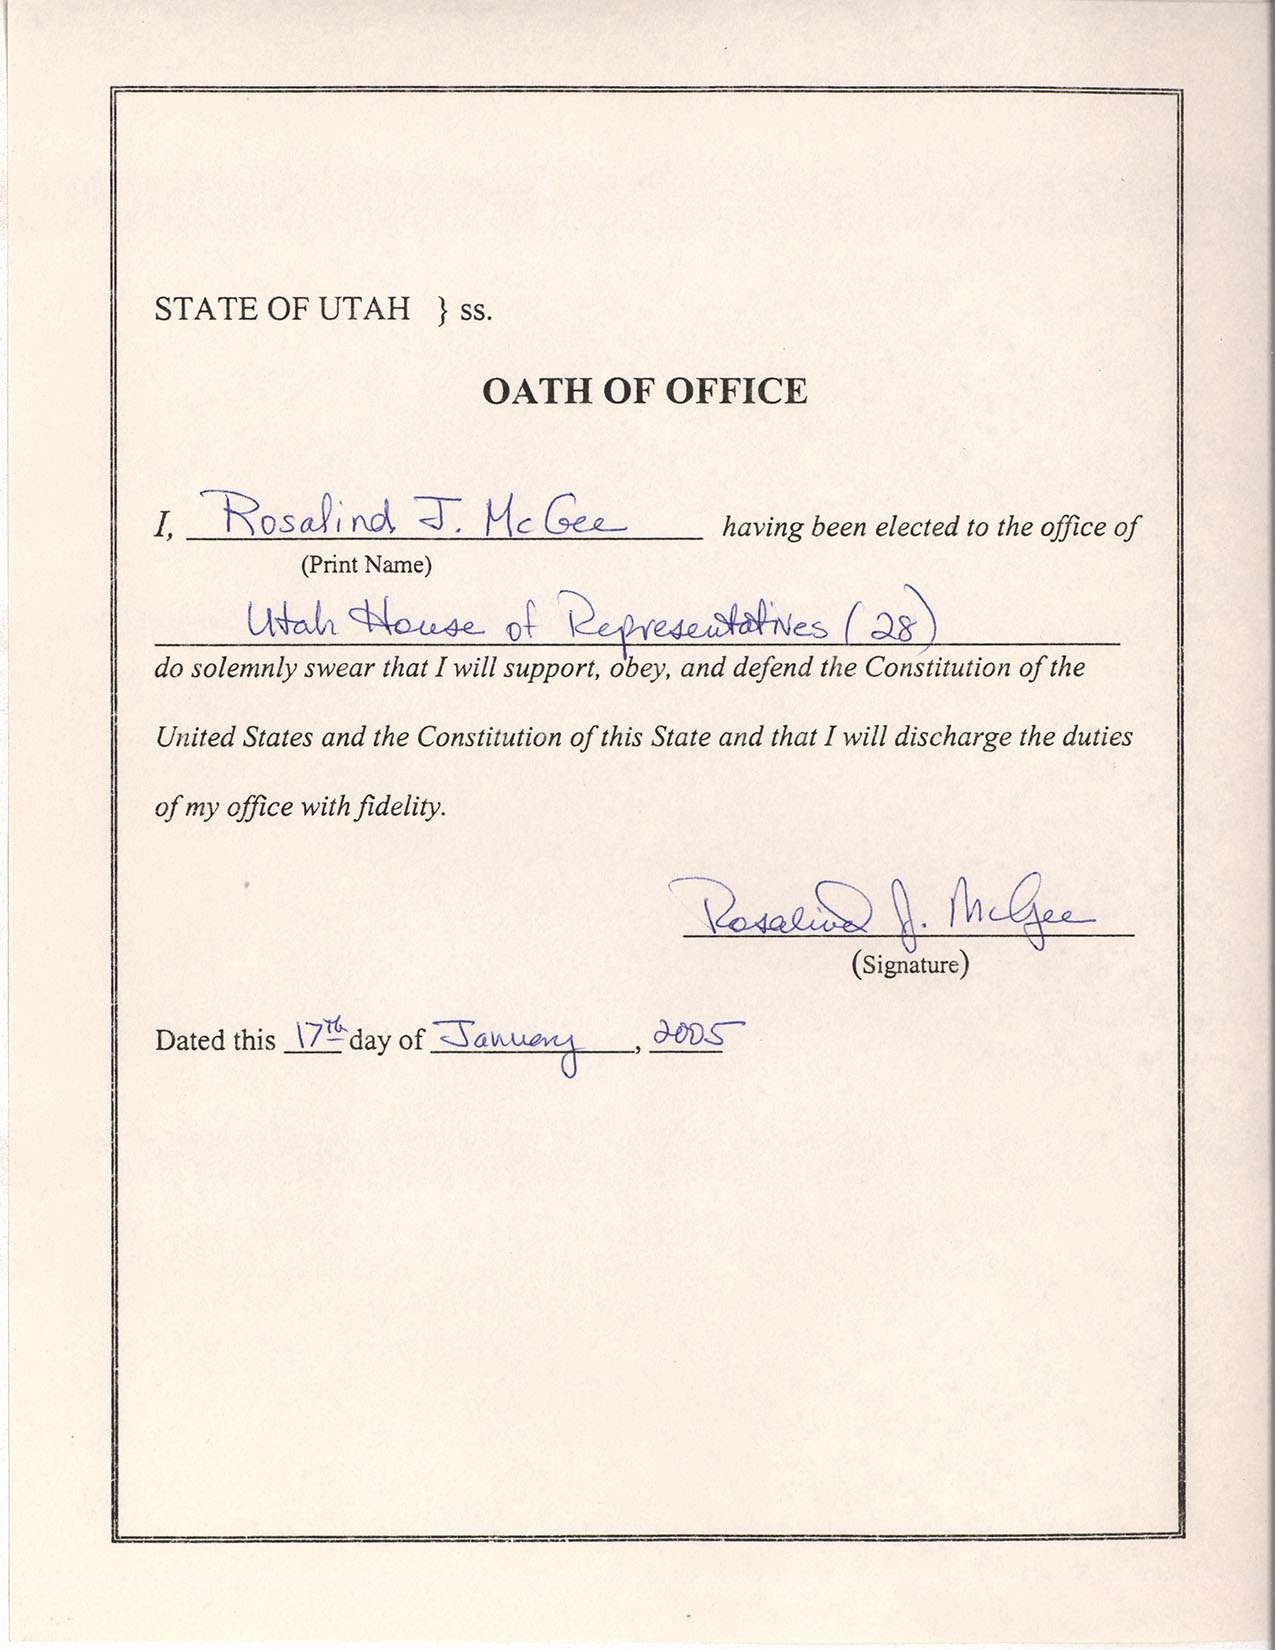 STATE OF UTAH } ss.
OATH OF OFFICE
I, Rosalind J. McGee having been elected to the office of
(Print Name)
Utah House of Representatives (28)
do solemnly swear that I will support, obey, and defend the Constitution of the
United States and the Constitution of this State and that I will discharge the duties
of my office with fidelity.
Rosalind J. McGee
(Signature)
Dated this 17th day of January, 2005